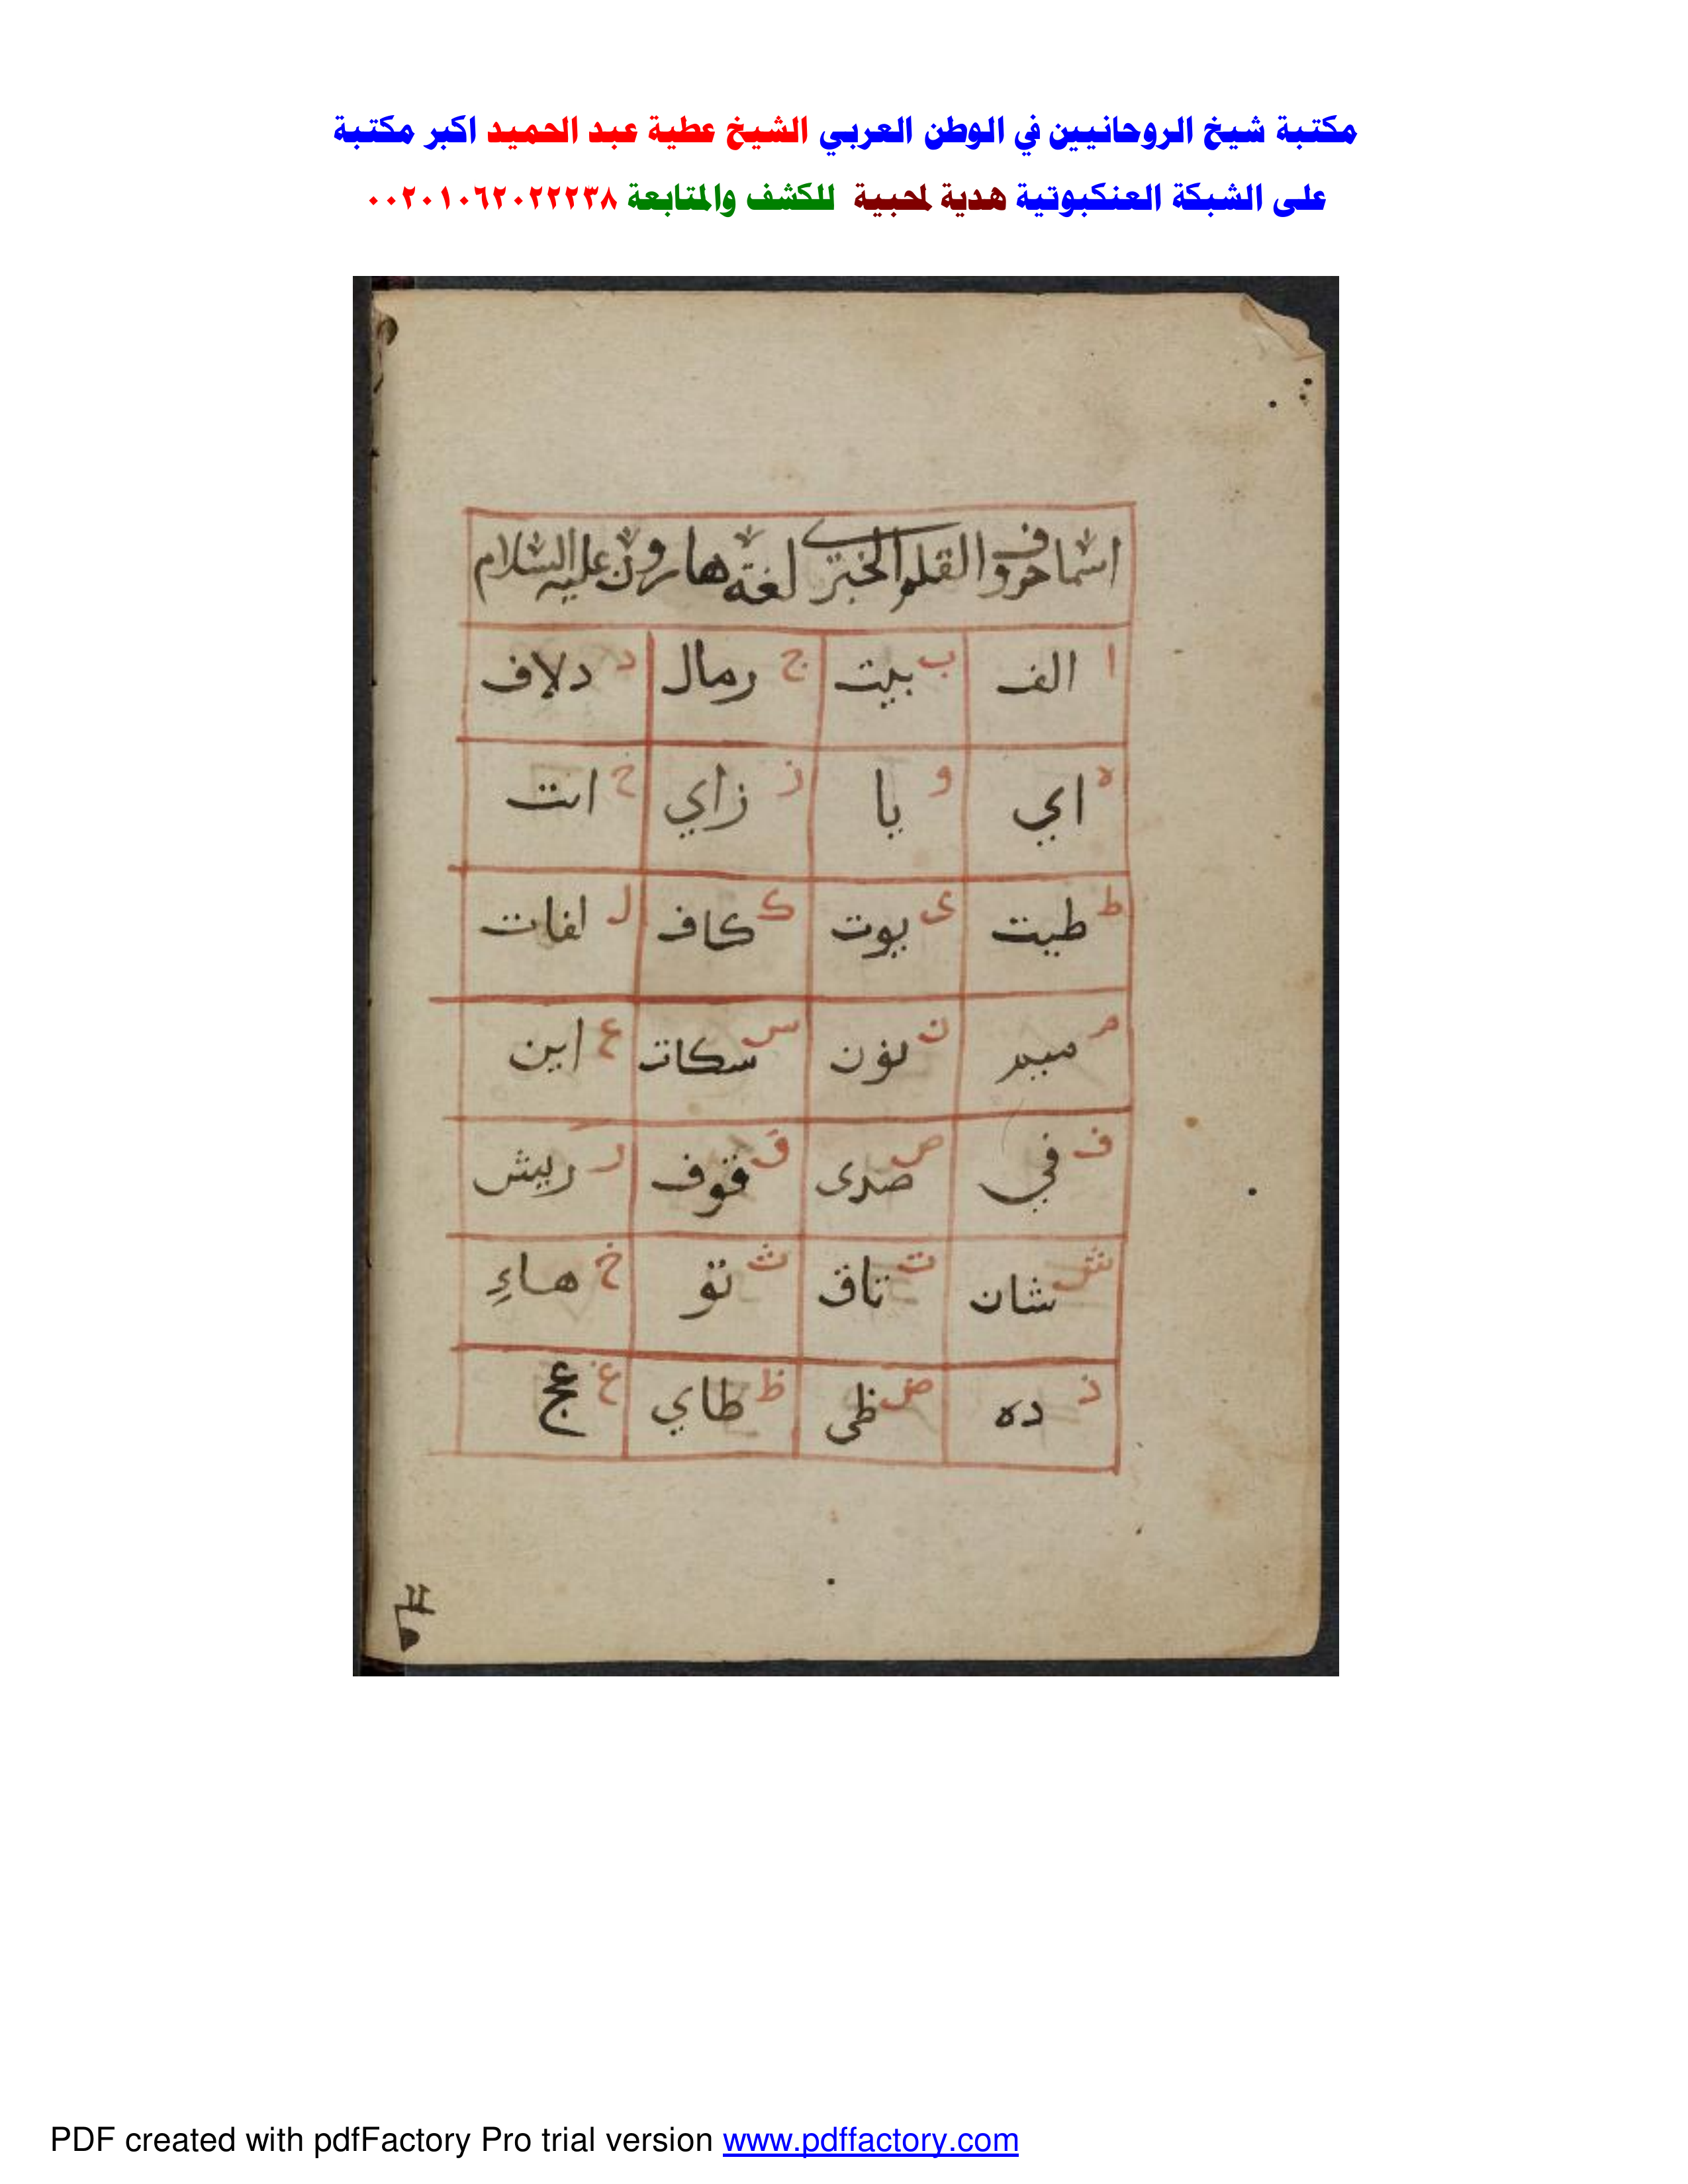 مكتبة شيخ الروحانيين في الوطن العربي الشيخ عطية عبد الحميد اكبر مكتبة
على الشبكة العنكبوتية هدية لمحبية للكشف والمتابعة ٠٠٢٠١٠٦٢٠٢٢٢٣٨
اسما حروف القلم لغة هارون عليه السلام
ا الف ب بيت ج رمال د دلاف
ه اي و يا ز زاي ح انت
ط طيت ى يوت ك كاف ل لفات
م ميم ن نون س سكات ع اين
ف في ص صدى ق قوف ر ريش
ش شان ت تاق ث تو خ هاء
ذ ده ض ظى ظ طاي غ عج
PDF created with pdfFactory Pro trial version www.pdffactory.com